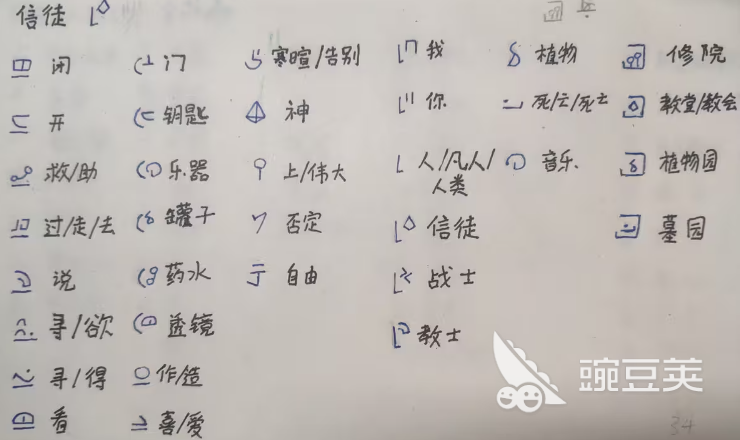 信徒
闭 门 寒暄/告别 我 植物 修院
开 钥匙 神 你 死/亡/死士 教堂/教会
救/助 乐器 上/伟大 人/凡人/人类 音乐 植物园
过/走/去 罐子 否定 信徒 墓园
说 药水 自由 战士
寻/欲 透镜 教士
寻/得 作/造
看 喜/爱
豌豆荚
34